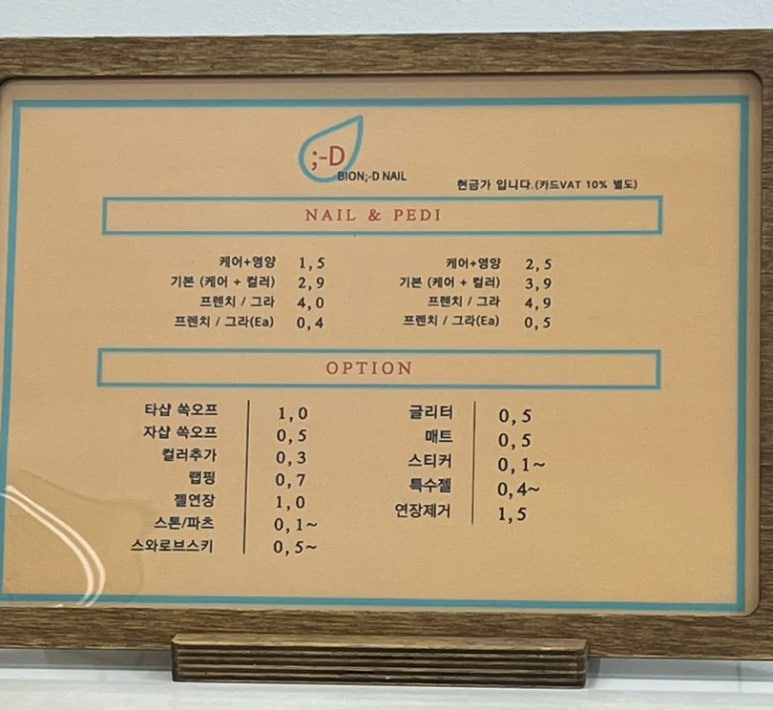 ;-D
BION;-D NAIL
현금가 입니다.(카드VAT 10% 별도)
NAIL & PEDI
케어+영양 1,5
기본 (케어 + 컬러) 2,9
프렌치 / 그라 4,0
프렌치 / 그라(Ea) 0,4
케어+영양 2,5
기본 (케어 + 컬러) 3,9
프렌치 / 그라 4,9
프렌치 / 그라(Ea) 0,5
OPTION
타샵 쏙오프 1,0
자샵 쏙오프 0,5
컬러추가 0,3
랩핑 0,7
젤연장 1,0
스톤/파츠 0,1~
스와로브스키 0,5~
글리터 0,5
매트 0,5
스티커 0,1~
특수젤 0,4~
연장제거 1,5